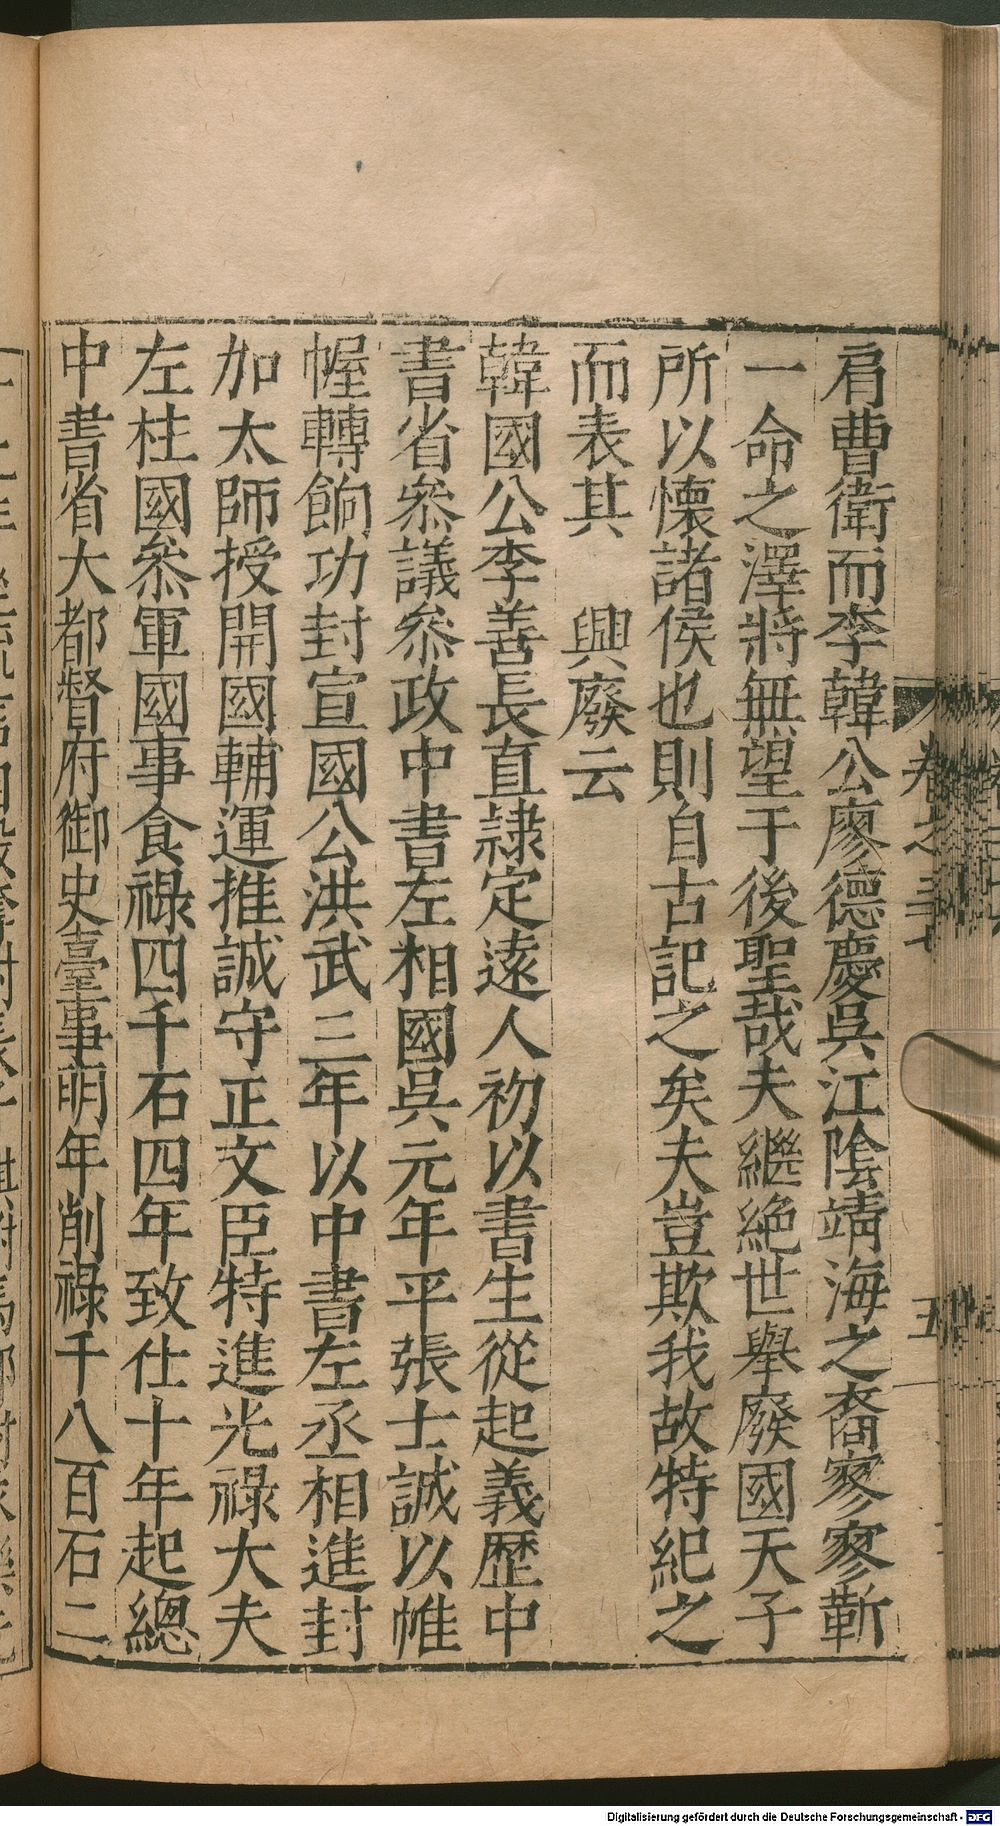 肩曹衛而李韓公廖德慶吳江陰靖海之裔寥寥靳
一命之澤將無望于後聖哉夫繼絶世舉廢國天子
所以懷諸侯也則自古記之矣夫豈欺我故特紀之
而表其　興廢云
韓國公李善長直隷定遠人初以書生從起義歷中
書省叅議叅政中書左相國吳元年平張士誠以帷
幄轉餉功封宣國公洪武三年以中書左丞相進封
加太師授開國輔運推誠守正文臣特進光祿大夫
左柱國叅軍國事食祿四千石四年致仕十年起總
中書省大都督府御史臺事明年削祿千八百石二
卷之三十
五
Digitalisierung gefördert durch die Deutsche Forschungsgemeinschaft - DFG